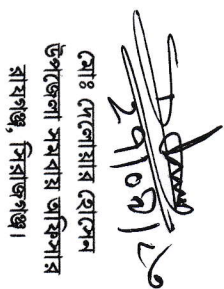 ২৭/০৮/১৩
মোঃ দেলোয়ার হোসেন
উপজেলা সমবায় অফিসার
রায়গঞ্জ, সিরাজগঞ্জ।